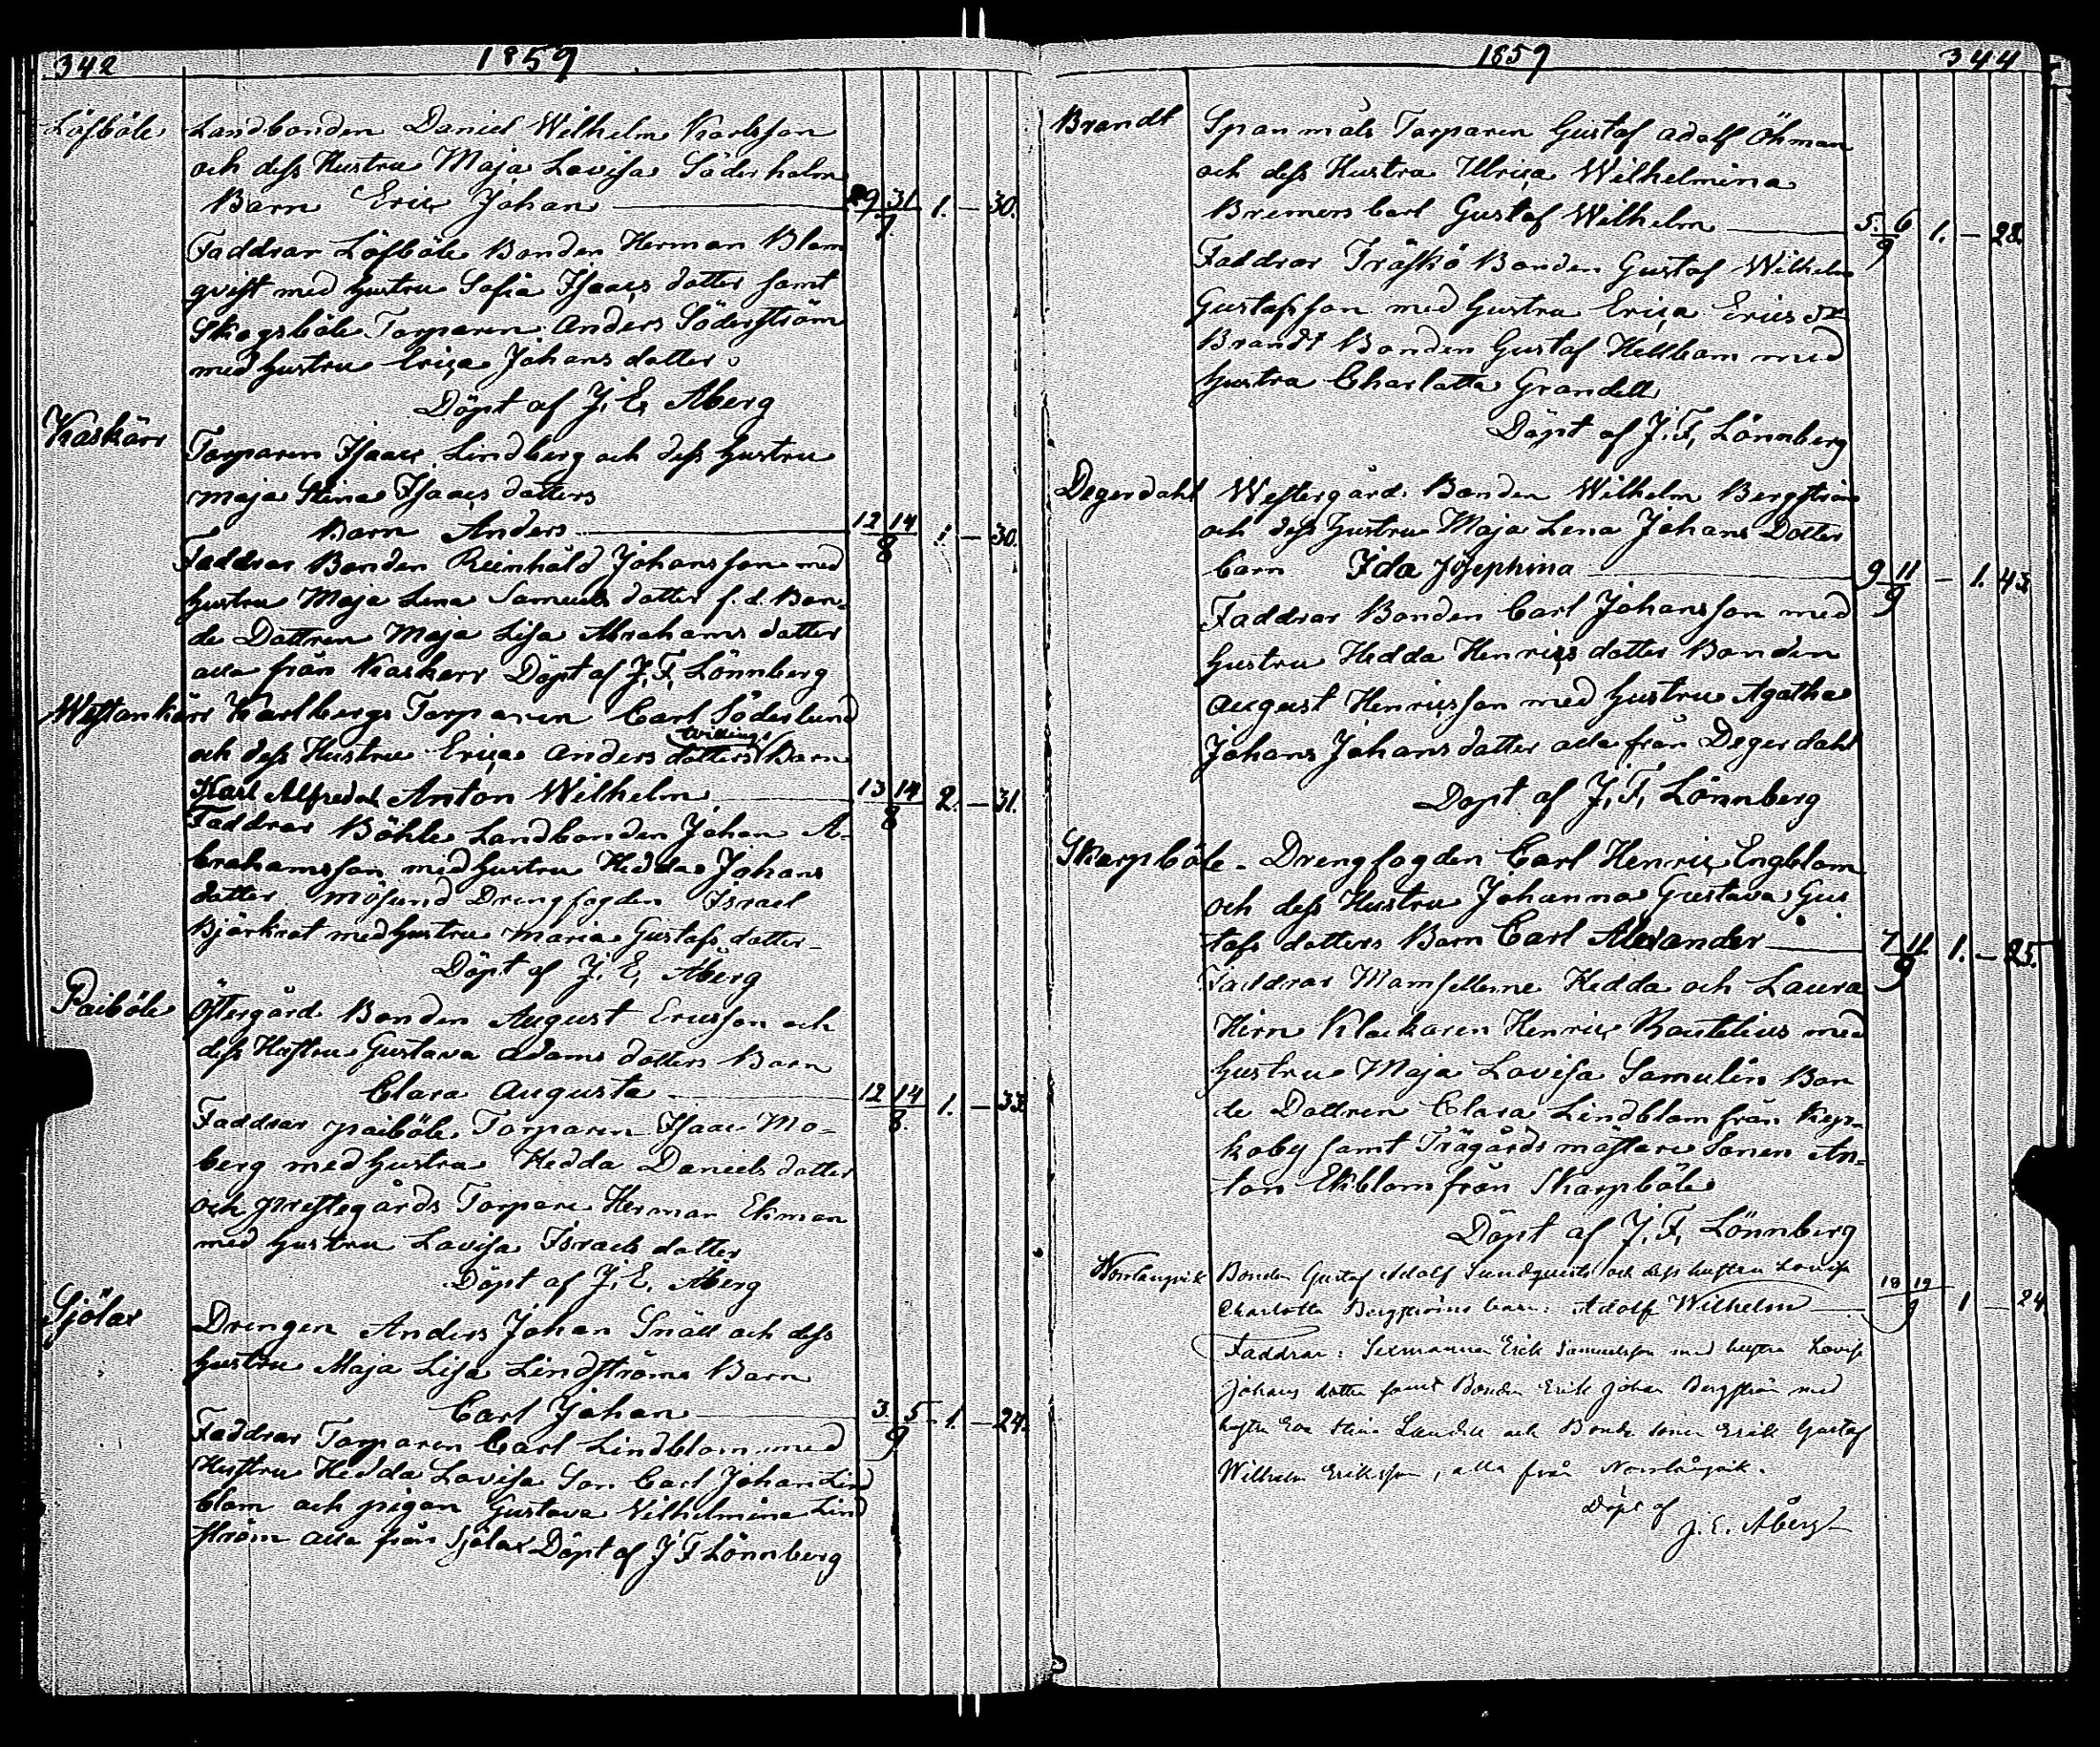 342
1859
Löfböle Landbonden Daniel Wilhelm Karlsson
och dess Hustru Maja Lovisa Söderholm
Barn Eric Johan 29 31/7 1. — 30.
Faddrar Löfböle Bonden Herman Blom
qvist med hustru Sofia Isaacs dotter samt
Skogsböle Torparen Anders Söderström
med hustru Erica Johans dotter
Döpt af J. E. Åberg
Kaskärr Torparen Isaac Lindberg och dess hustru
Maja Stina Isaacs dotters
Barn Anders 12 14/8 1. — 30.
Faddrar Bonden Reinhold Johansson med
hustru Maja Lena Samuels dotter f. d. Bon-
de Dottren Maja Lisa Abrahams dotter
alla från Kaskerr Döpt af J. F. Lönnberg
Westankärr Karlbergs Torparen Carl Söderlund
och dess Hustru Erica Anders dotters tvillings Barn
Karl Alfred och Anton Wilhelm 13 14/8 2. — 31.
Faddrar Böhle Landbonden Johan A-
brahamsson med hustru Hedda Johans
dotter Mösund Drengfogden Israel
Björkrot med hustru Maria Gustafs dotter
Döpt af J. E. Åberg
Paiböle Östergård Bonden August Ericsson och
dess Hustru Gustava Adams dotters Barn
Clara Augusta 12 14/8. 1. — 33
Faddrar paiböle Torparen Isaac Mo-
berg med hustru Hedda Daniels dotter
och prestegårds Torpare Herman Ekman
med hustru Lovisa Israels dotter
Döpt af J. E. Åberg
Sjölax Drengen Anders Johan Snäll och dess
hustru Maja Lisa Lindströms Barn
Carl Johan 3. 5/9 1. — 24.
Faddrar Torparen Carl Lindblom med
Hustru Hedda Lovisa Son Carl Johan Lind
blom och pigan Gustava Wilhelmina Lind
ström alla från Sjölax Döpt af J F Lönnberg
1859
344
Brandt Spanmåls Torparen Gustaf Adolf Öhman
och dess Hustru Ulrica Wilhelmina
Bremers barn Gustaf Wilhelm 5. 6/9 1. — 28.
Faddrar Träskö Bonden Gustaf Wilhelm
Gustafsson med hustru Erica Erics dr
Brandt Bonden Gustaf Hellbom med
hustru Charlotta Grandell
Döpt af J. F. Lönnberg
Degerdahl Westergård Bonden Wilhelm Bergström
och dess hustru Maja Lena Johans Dotter
barn Ida Josephina 9 11/9 — 1. 43
Faddrar Bonden Carl Johansson med
hustru Hedda Henrics dotter Bonden
August Henricsson med hustru Agatha
Johans Johans dotter alla från Degerdahl
Döpt af J. F. Lönnberg
Skarpböle - Drengfogden Carl Henric Engblom
och dess Hustru Johanna Gustava Gus
tafs dotters Barn Carl Alexander 7 11/9 1. — 25.
Faddrar Mamsellerne Hedda och Laura
Hirn Klockaren Henric Bautelius med
hustru Maja Lovisa Samulin Bon
de Dottren Clara Lindblom från
koby samt Trägårds mästare Sonen An-
ton Ekblom från Skarpböle
Döpt af J. F. Lönnberg
Norrlangvik Bonden Gustaf Adolf Sundqvists och dess hustru Lovisa
Charlotta Bergströms barn: Adolf Wilhelm 18 19/9 1 — 24
Faddrar: Sexmannen Erik Samuelsson med hustru Lovisa
Johans dotter samt Bonden Erik Johan Bergström med
hustru Eva Stina Lundell och Bonde sonen Erik Gustaf
Wilhelm Eriksson, alla från Norrlångvik.
Döpt af
J. E. Åberg